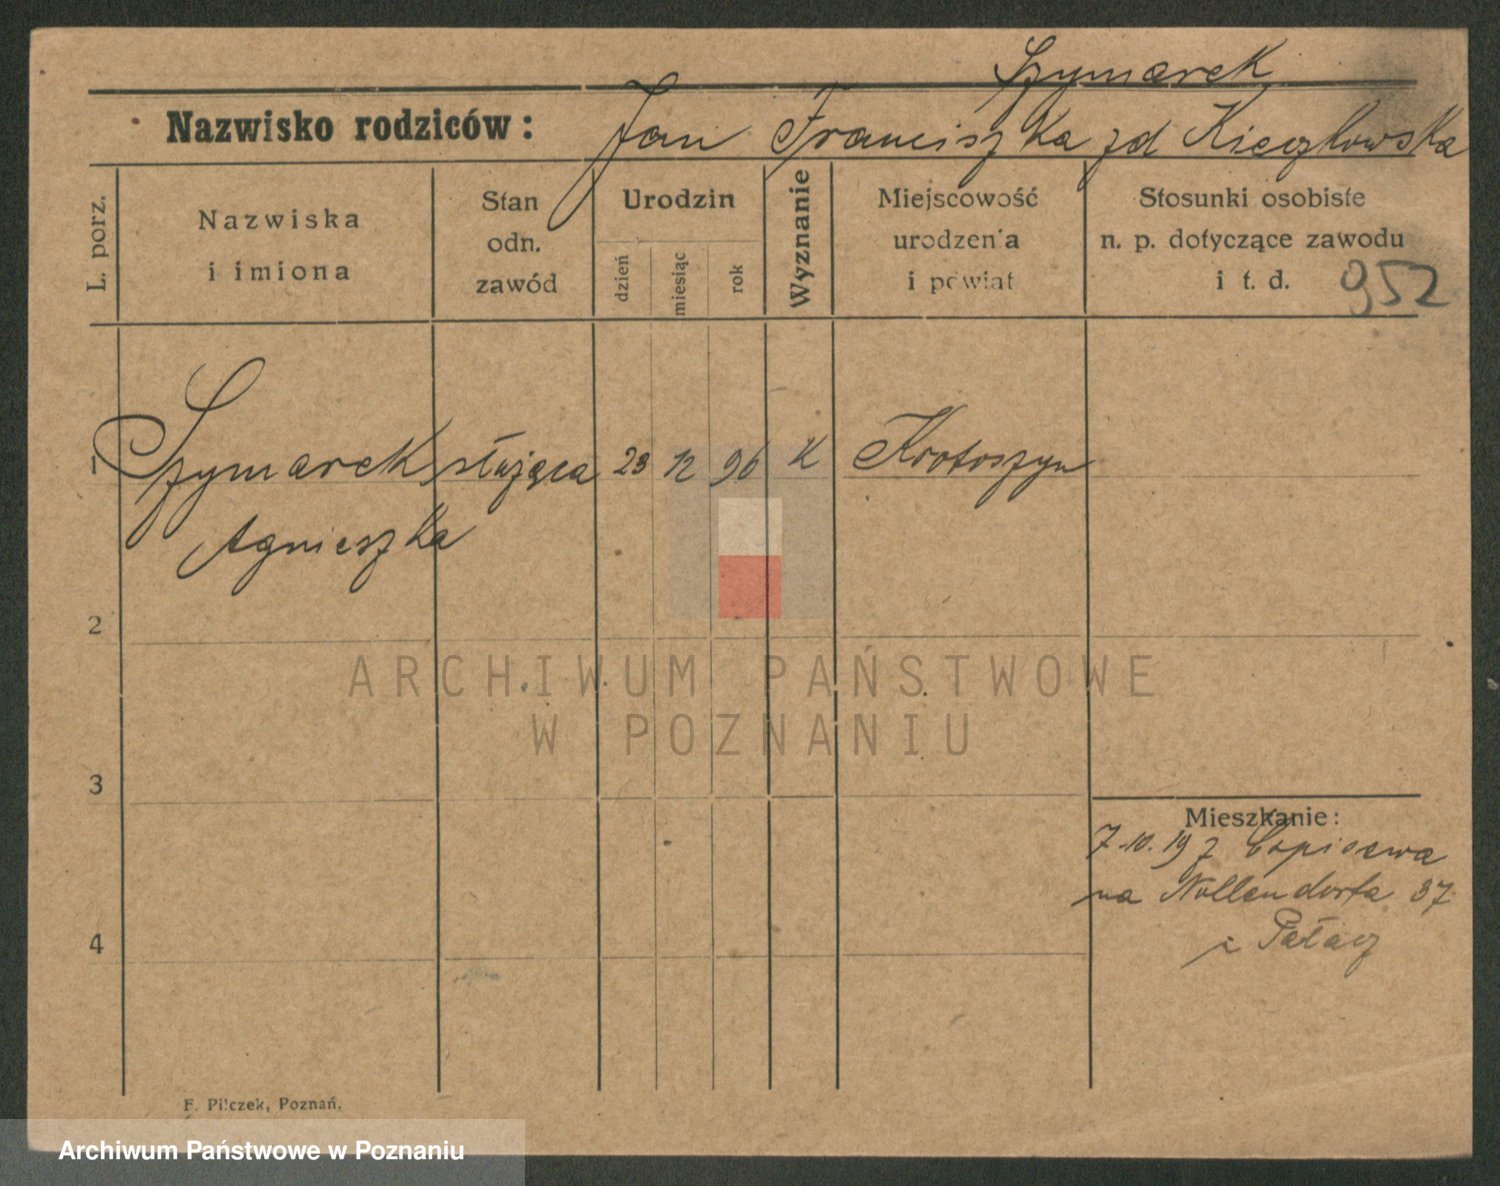 Szymarek
Nazwisko rodziców: Jan Franciszka zd Kieczkowska
L. porz.
Nazwiska
i imiona
Stan
odn.
zawód
Urodzin
dzień
miesiąc
rok
Wyznanie
Miejscowość
urodzenia
i powiat
Stosunki osobiste
n. p. dotyczące zawodu
i t. d. 952
1 Szymarek służąca 23 12 96 K Krotoszyn
Agnieszka
2
ARCHIWUM PAŃSTWOWE
W POZNANIU
3
Mieszkanie:
7.10.19 z
na Nollendorfa 37
4
Pałacz
F. Pilczek, Poznań.
Archiwum Państwowe w Poznaniu